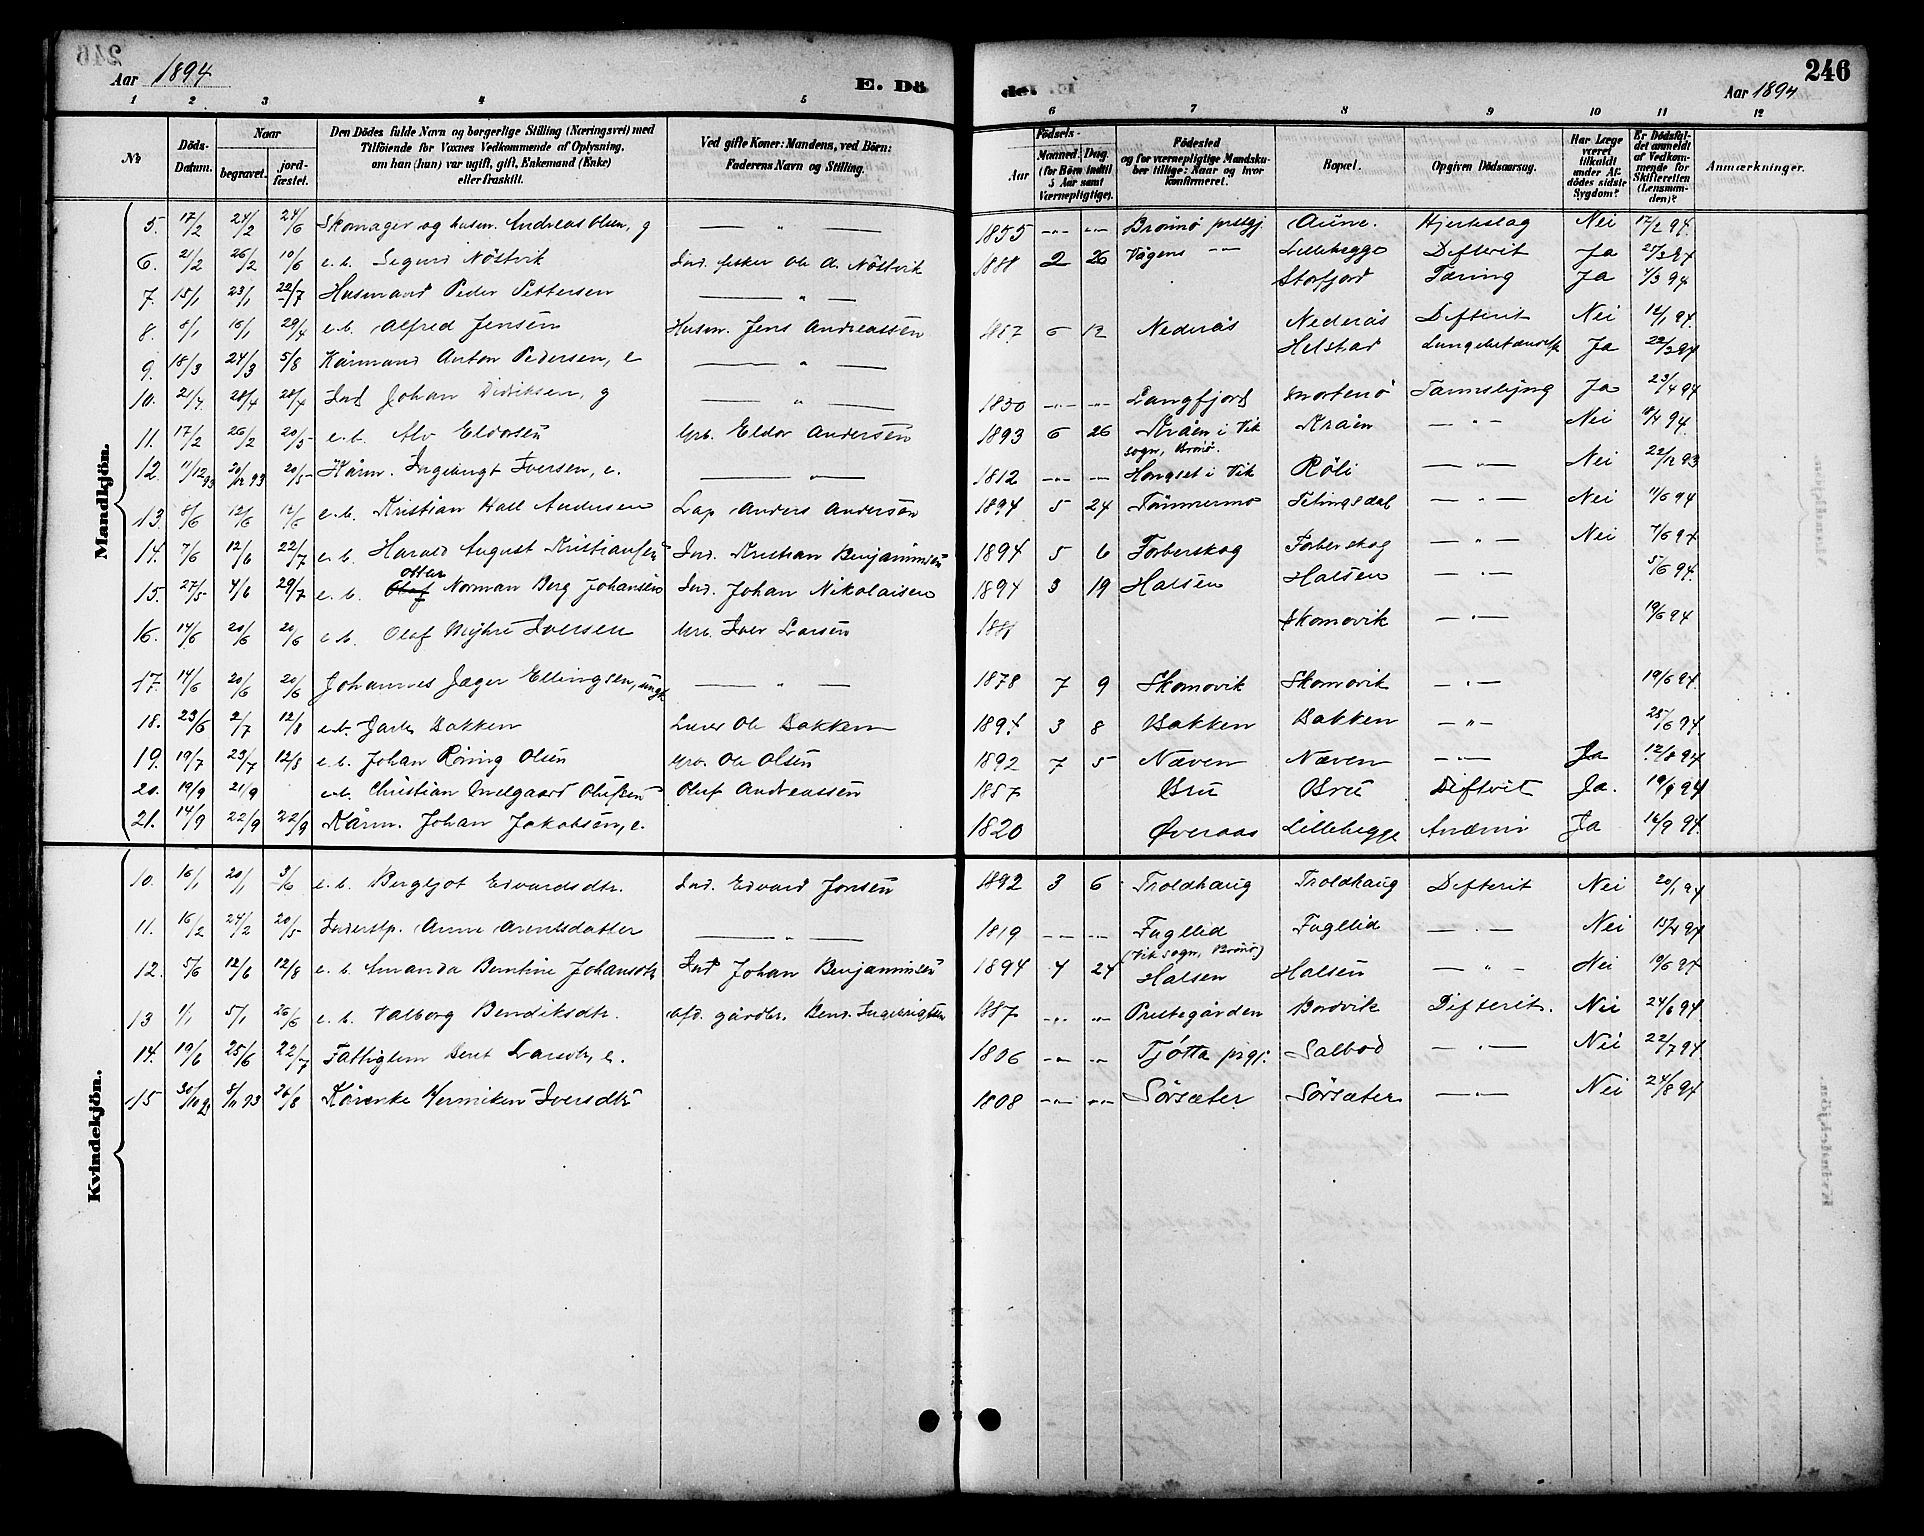 246
Aar 1894
E. Dö
de.
Aar 1894
1 2 3 4 5 6 7 8 9 10 11 12
No
Döds-Datum.
Naar
begravet.
jordfæstet.
Den Dödes fulde Navn og borgerlige Stilling (Næringsvei) med Tilföiende for Voxnes Vedkommende af Oplysning, om han (hun) var ugift, gift, Enkemand (Enke) eller fraskilt.
Ved gifte Koner: Mandens, ved Börn: Faderens Navn og Stilling.
Födsels-
Aar
Maaned. Dag.
(for Börn indtil 5 Aar samt Værnepligtige).
Födested og for værnepligtige Mandskuber tillige: Naar og hvor konfirmeret.
Bopæl.
Opgiven Dödsaarsag.
Har Læge været tilkaldt under Afdödes sidste Sygdom?
Er Dödsfaldet anmeldt af Vedkommende for Skifteretten (Lensmanden)?
Anmærkninger.
Mandkjön.
5. 17/2 24/2 24/6 Skomager og husm. Andreas Olsen, g — " — 1855 -"- -"- Brönnö prestgj. Aune. Hjerteslag Nei 17/2 94.
6. 21/2 26/2 10/6 e.b. Sigurd Nöstvik Ind. fisker Ole A. Nöstvik 1881 2 26 Vågens Lillehegge Difterit Ja 27/3 94
7. 15/1 23/1 22/7 Husmand Peder Pettersen — " — Storfjord Tæring Ja 1/3 94
8. 8/1 16/1 29/4 e.b. Alfred Jensen Husm. Jens Andreassen 1887 6 12 Nederås Nederås Difterit Nei 12/1 94.
9. 18/3 24/3 5/8 Kårmand Anton Pedersen, e — " — Helstad Ja 22/3 94
10. 21/4 28/4 28/4 Ind. Johan Didriksen, g — " — 1850 -"- -"- Langfjord Mortenö Tarmslyng Ja 23/4 94
11. 17/2 26/2 20/5 e.b. Alv Eldorsen Grb. Eldor Andersen 1893 6 26 Kråen i Vik sogn, Brönö. Kråen — " — Nei 18/4 94.
12. 11/12 93 20/12 93 20/5 Kårm. Ingebrigt Iversen, e. — " — 1812 -"- -"- Hongset i Vik Röli — " — Nei 22/12 93
13. 8/6 12/6 12/6 e.b. Kristian Hall Andersen Lap Anders Andersen 1894 5 24 Tömmermo Telingsdal — " — Nei 11/6 94
14. 7/6 12/6 22/7 e.b. Harald August Kristiansen Ind. Kristian Benjaminsen 1894 5 6 Forberskog Forberskog — " — Nei 7/6 94
15. 27/5 4/6 29/7 e.b. Olaf Otter Norman Berg Johansen Ind. Johan Nikolaisen 1894 3 19 Halsen Halsen — " — 5/6 94.
16. 14/6 20/6 20/6 e.b. Olaf Myhre Iversen Grb. Iver Larsen 188 Skomovik — " — 19/6 94
17. 14/6 20/6 20/6 Johannes Jæger Ellingsen, ungk — " — 1878 7 9 Skomovik Skomovik — " — 19/6 94.
18. 23/6 2/7 12/8 e.b. Jarle Bakken Lærer Ole Bakken 1894 3 8 Bakken Bakken — " — 25/6 94
19. 19/7 23/7 12/8 e.b. Johan Röring Olsen Grb. Ole Olsen 1892 7 5 Næven Næven — " — Ja 12/8 94
20. 19/9 21/9 e.b. Christian Melgaard Olufsen Oluf Andreassen 1887 Bru Bru Diftrit Ja. 19/9 94
21. 14/9 22/9 22/9 Kårm. Johan Jakobsen, e. 1820 Øveraas Lillehegge Ja 16/9 94.
Kvindekjön.
10. 16/1 20/1 3/6 e.b. Bergljot Edvardsdtr. Ind. Edvard Jensen 1892 3 6 Troldhaug Troldhaug Difterit Nei 20/1 94
11. 16/2 24/2 20/5 Inderstp. Anne Arentsdatter — " — 1819 -"- -"- Fugllid (Vik sogn, Brönö) Fugllid — " — Nei 15/4 94
12. 5/6 12/6 12/8 e.b. Amanda Berntine Johansdtr Ind Johan Benjaminsen 1894 4 24 Halsen Halsen — " — Nei 10/6 94
13 1/1 5/1 26/6 e.b. Valborg Bendiksdtr. afd. gårdbr. Bend. Ingebrigtsen 1887 -"- -"- Prestegården Bordvik Difterit. Nei 24/6 94.
14. 19/6 25/6 22/7 Fattiglem Beret Larsdtr, e. 1806 -"- -"- Tjötta prgj. Salbod — " — Nei 22/7 94
15 30/10 93 8/11 93 26/8 Kårenke Hermiken Iversdtr 1808 -"- -"- Sörsæter Sörsæter — " — Nei 24/8 94